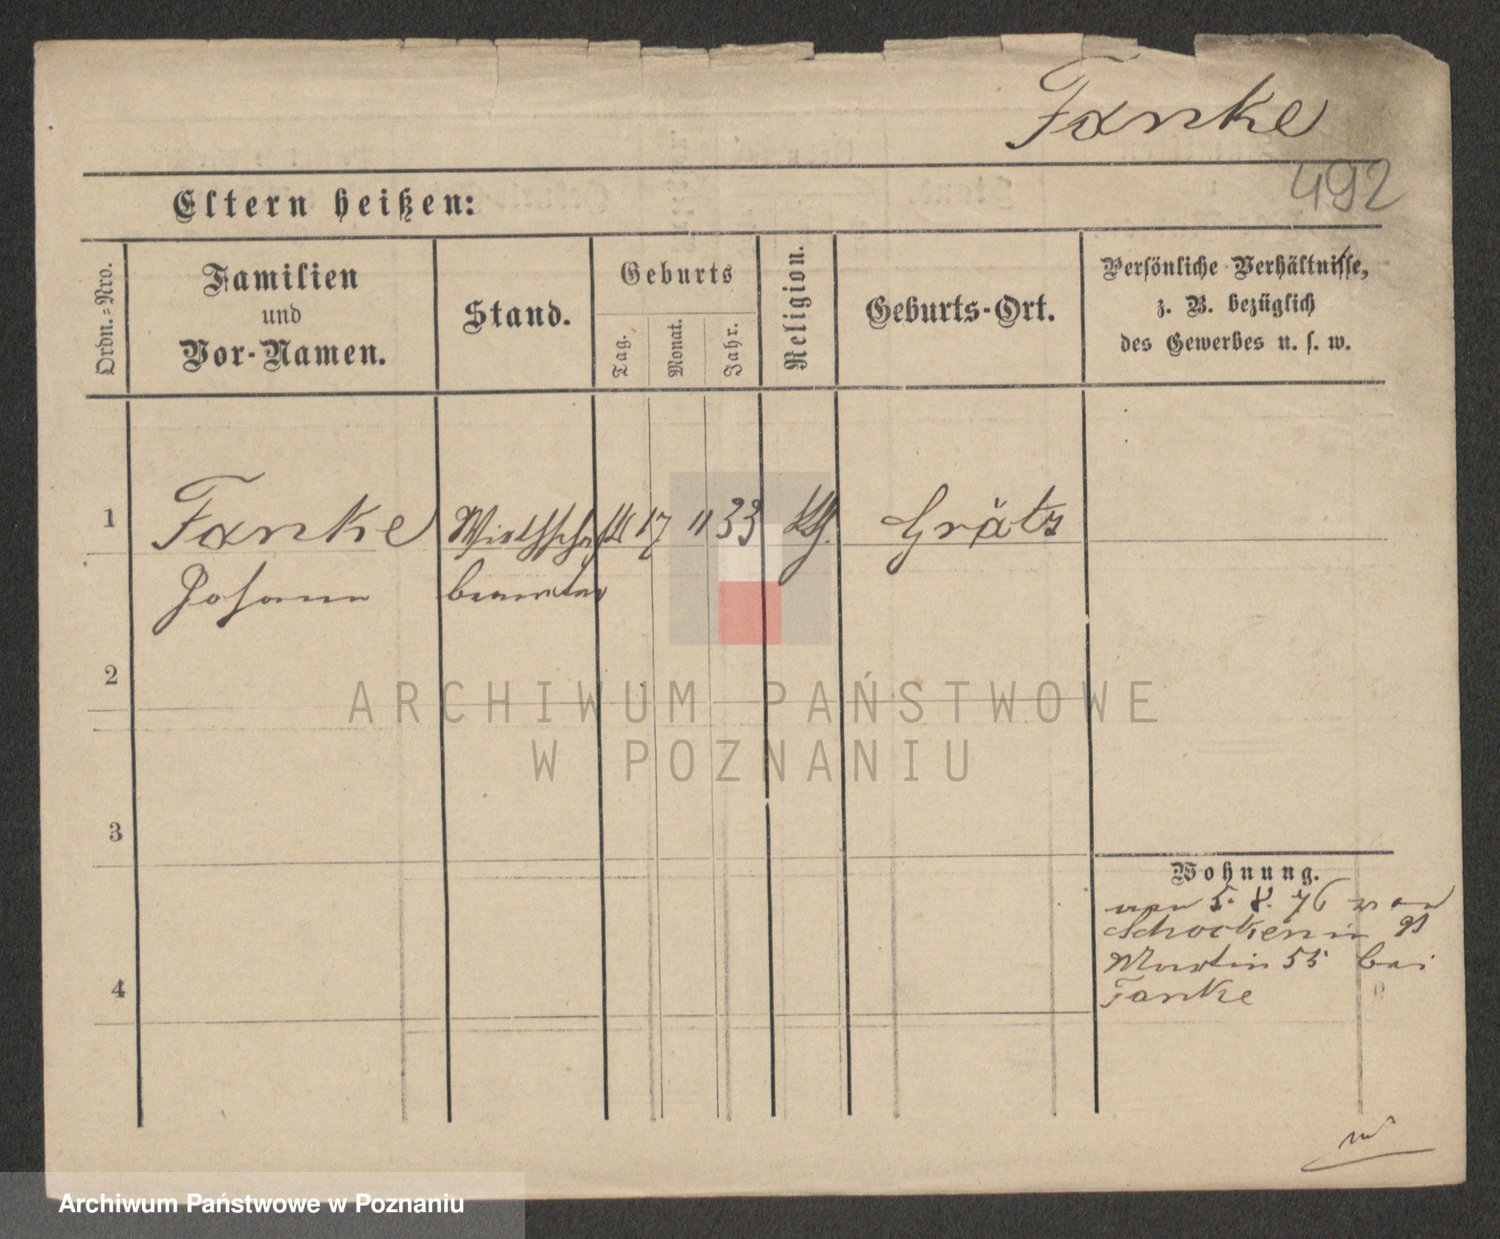 Fanke
492
Eltern heißen:
Ordn.-Nro.
Familien
und
Vor-Namen.
Stand.
Geburts
Tag.
Monat.
Jahr.
Religion.
Geburts-Ort.
Persönliche Verhältnisse,
z. B. bezüglich
des Gewerbes u. s. w.
1
Fanke
Johann
Wirthschafts
beamter
17
11
33
Grätz
2
3
4
Wohnung.
5. 8. 76 von
Schocken in St
Martin 55 bei
Fanke
ARCHIWUM PAŃSTWOWE
W POZNANIU
Archiwum Państwowe w Poznaniu